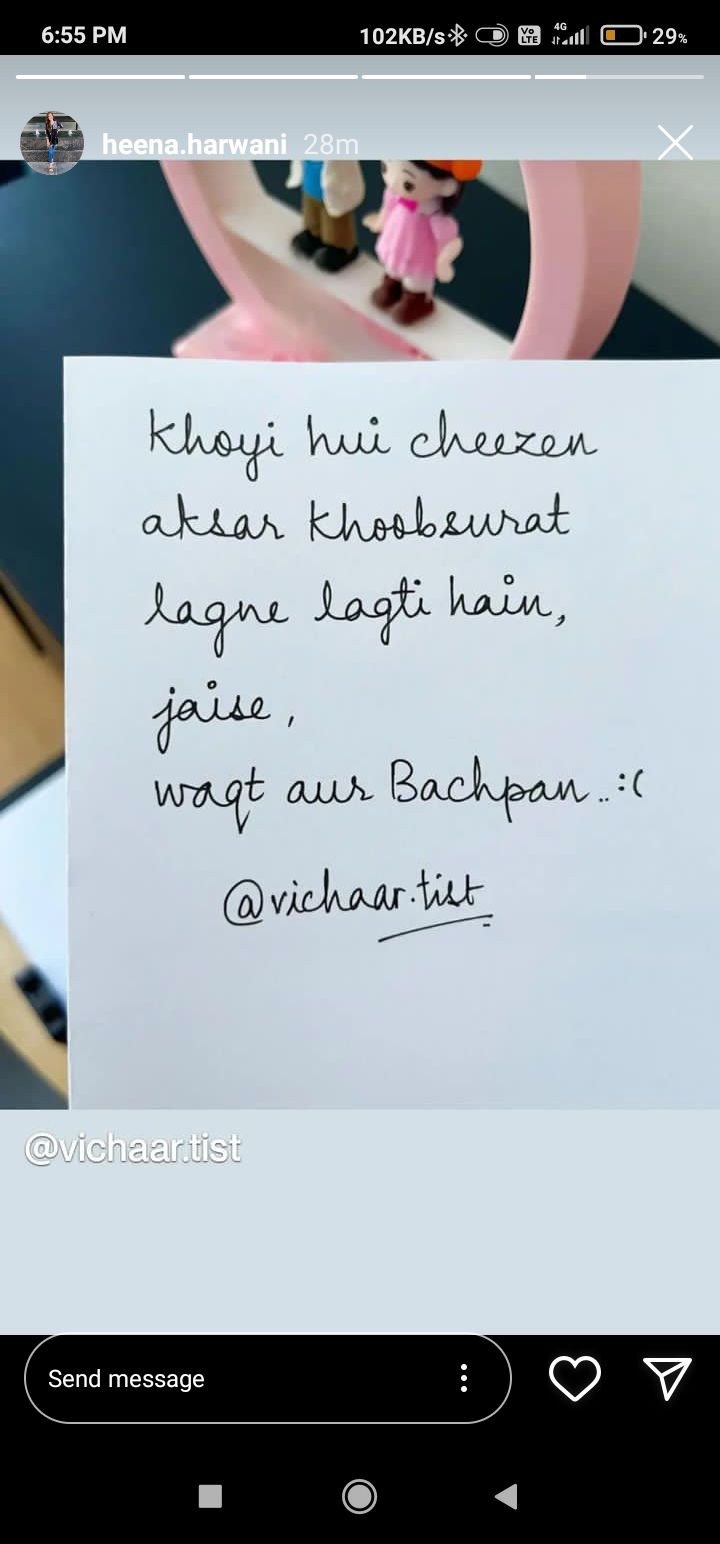 6:55 PM 102KB/s Vo LTE 4G 29%
heena.harwani 28m
Khoyi hui cheezen
aksar khoobsurat
lagne lagti hain,
jaise,
waqt aur Bachpan..:(
@vichaar.tist
@vichaar.tist
Send message